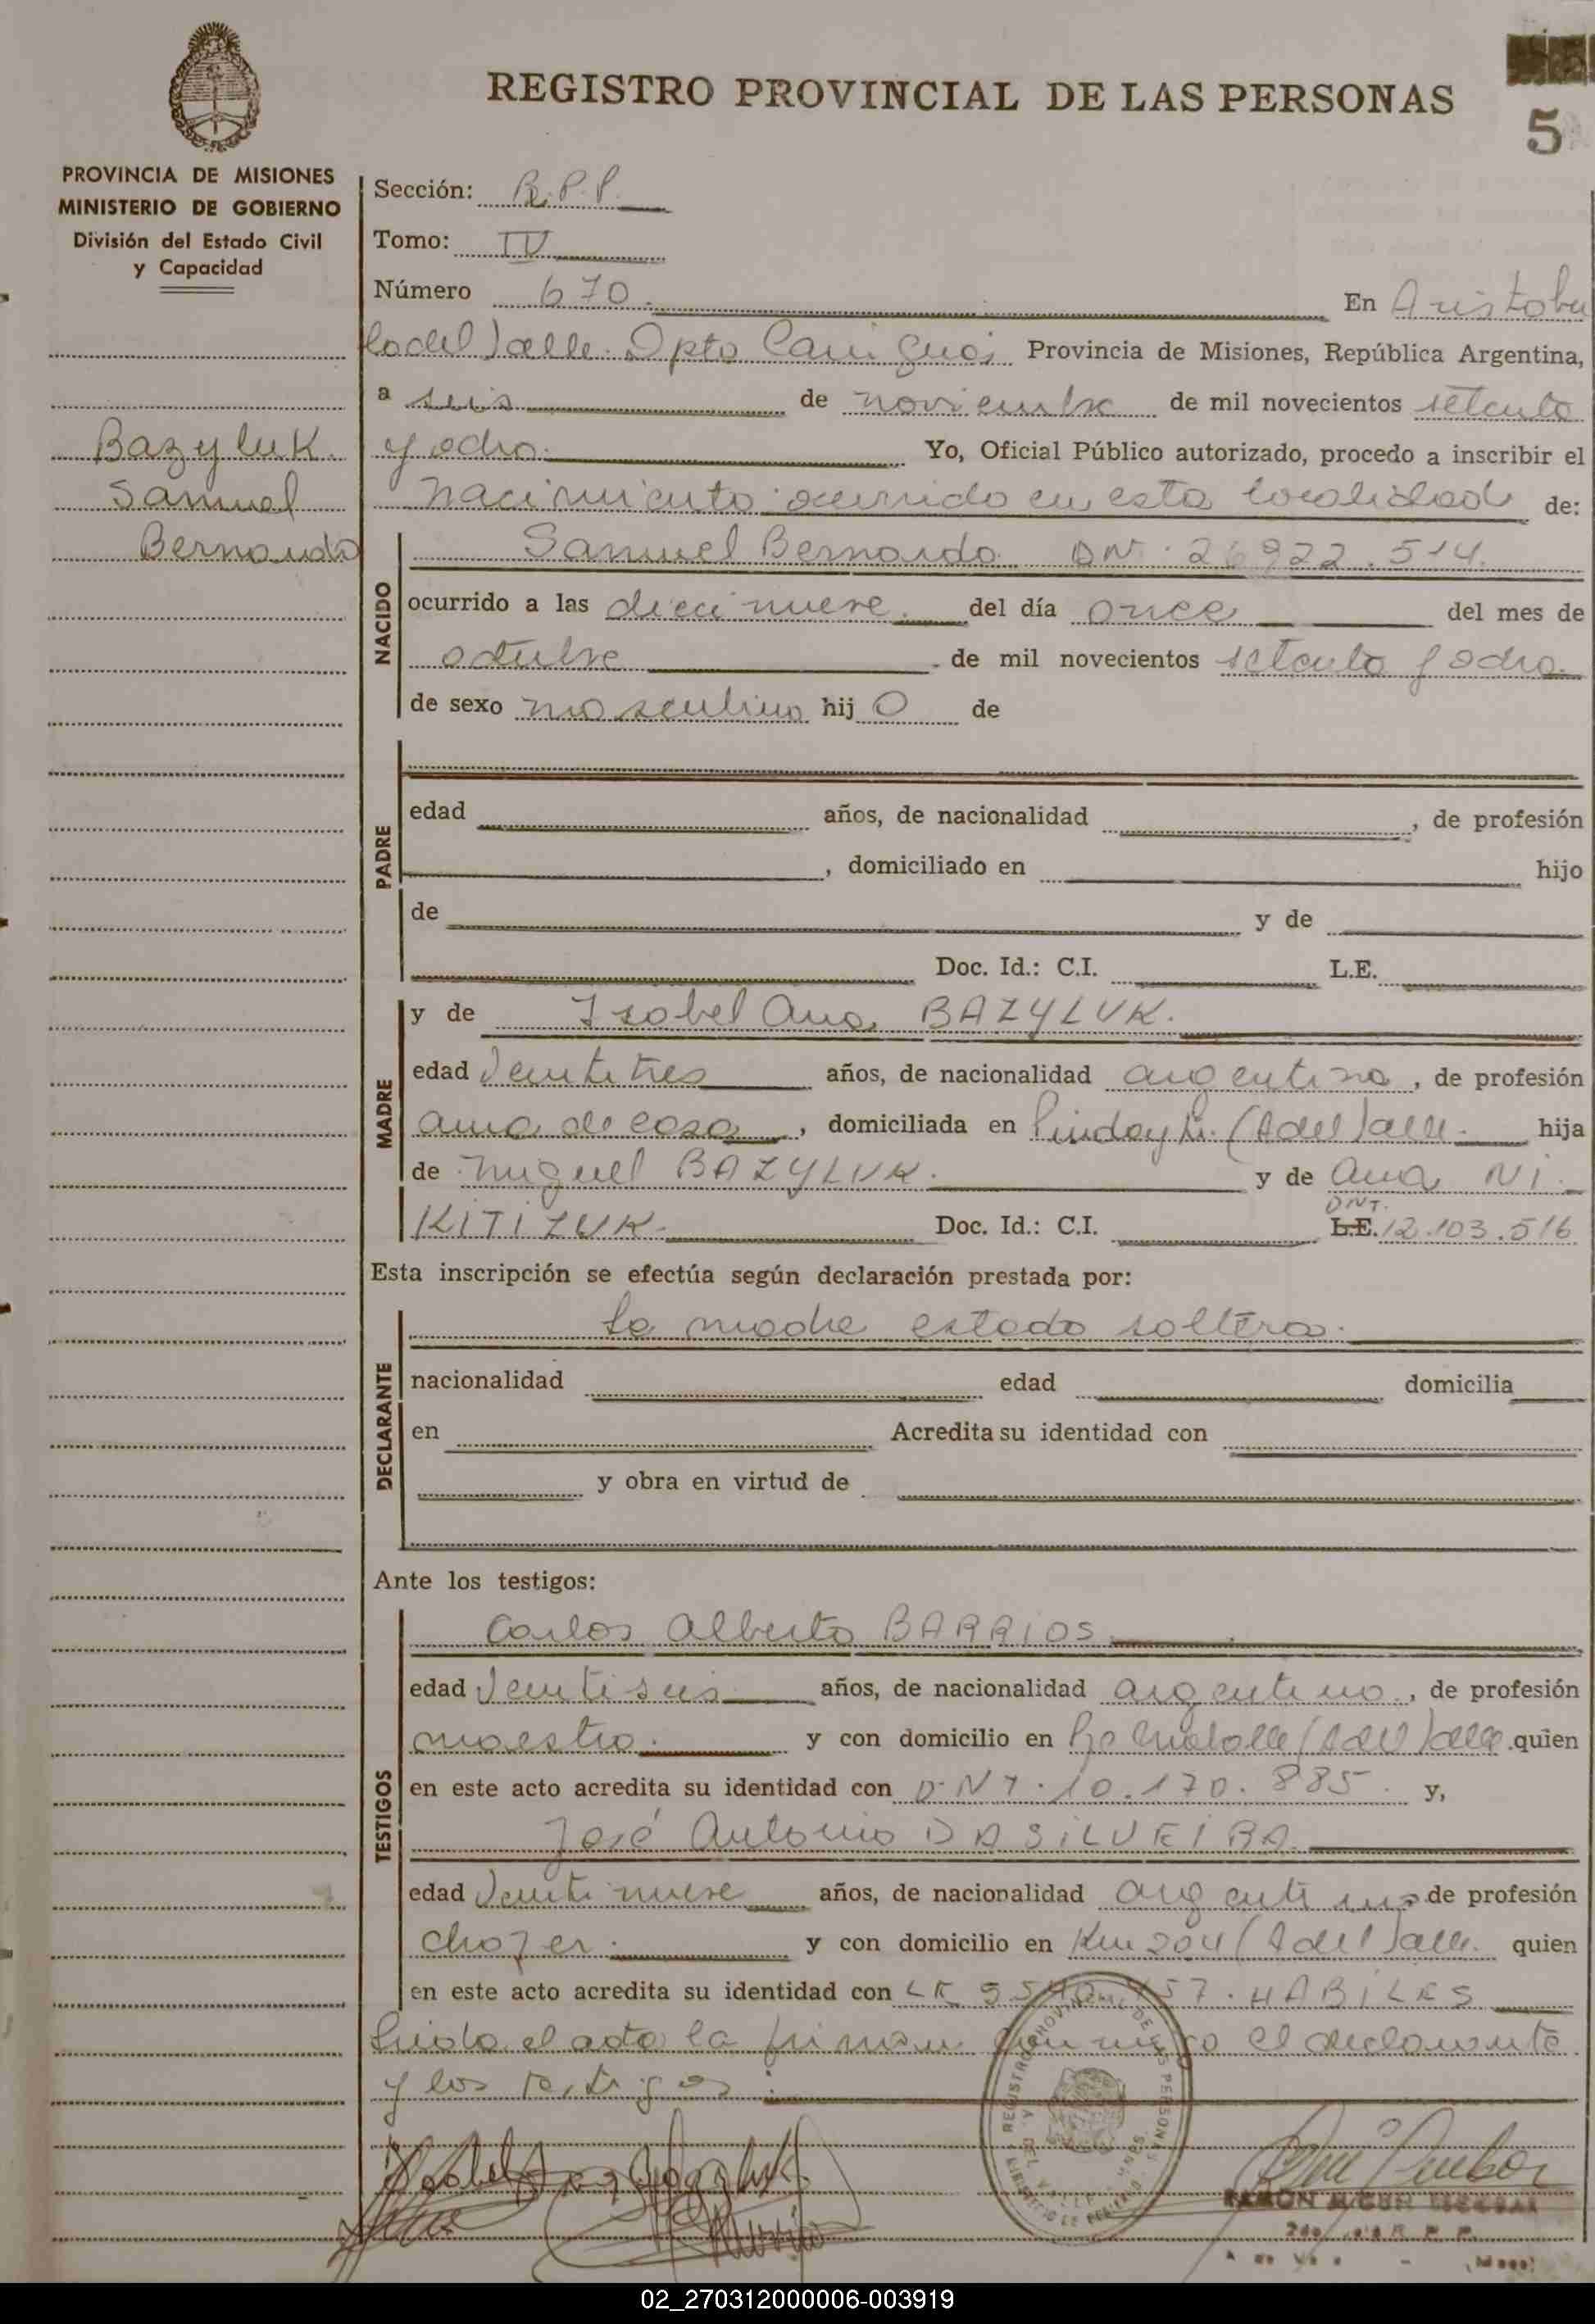 REGISTRO PROVINCIAL DE LAS PERSONAS
5
PROVINCIA DE MISIONES
MINISTERIO DE GOBIERNO
División del Estado Civil
y Capacidad
Bazyluk
Samuel
Bernardo
Sección: R.P.P.
Tomo: IV
Número 670. En Aristobu
lo del Valle. Dpto Cainguás Provincia de Misiones, República Argentina,
a seis de noviembre de mil novecientos setenta
y ocho. Yo, Oficial Público autorizado, procedo a inscribir el
nacimiento ocurrido en esta localidad de:
NACIDO
Samuel Bernardo DNI. 26.922.514
ocurrido a las diecinueve. del día once del mes de
octubre de mil novecientos setenta y ocho.
de sexo masculino hij o de
PADRE
edad años, de nacionalidad , de profesión
, domiciliado en hijo
de y de
Doc. Id.: C.I. L.E.
MADRE
y de Isabel Ana BAZYLUK.
edad Veintitres años, de nacionalidad argentina, de profesión
ama de casa, domiciliada en Pindayti. (A del Valle. hija
de Miguel BAZYLUK. y de Ana NI
KITIZUK. Doc. Id.: C.I. DNI. L.E. 12.103.516
Esta inscripción se efectúa según declaración prestada por:
DECLARANTE
La madre estado soltera.
nacionalidad edad domicilia
en Acredita su identidad con
y obra en virtud de
Ante los testigos:
TESTIGOS
Carlos Alberto BARRIOS.
edad Veintiseis años, de nacionalidad argentino, de profesión
maestro. y con domicilio en (A del Valle quien
en este acto acredita su identidad con DNI. 10.170.885. y,
José Antonio DA SILVEIRA
edad Veintinueve años, de nacionalidad argentino de profesión
chofer. y con domicilio en Km 204 (A del Valle. quien
en este acto acredita su identidad con LE 457. HABILES
Leida el acta la firman conmigo el declarante
y los testigos.
REGISTRO PROVINCIAL DE LAS PERSONAS
02_270312000006-003919